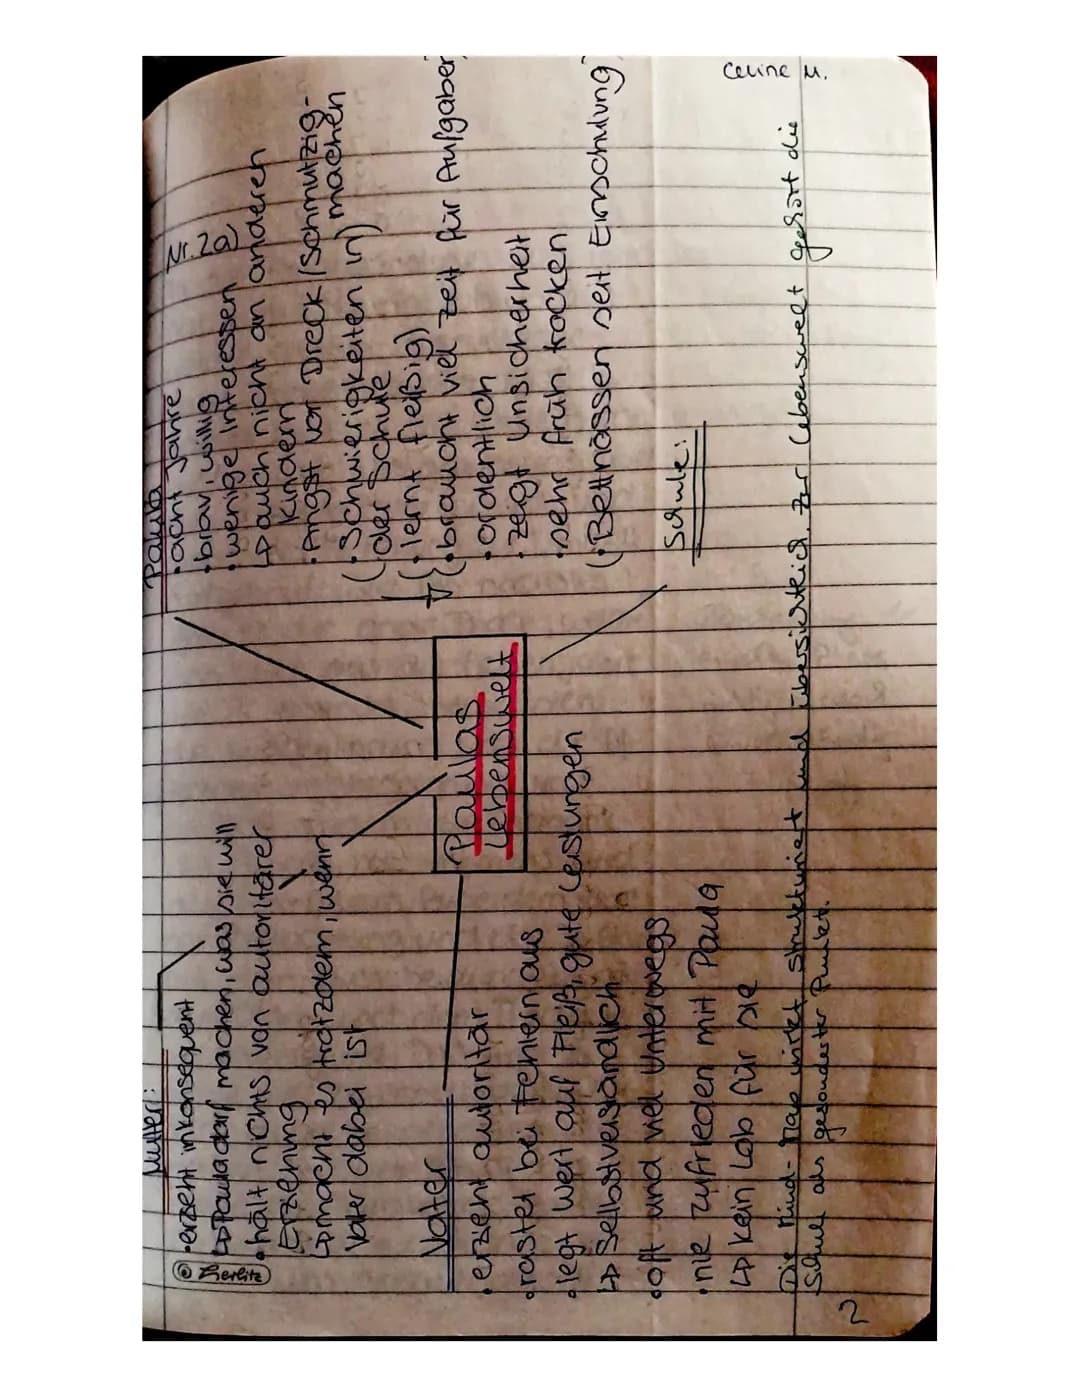 Celine M.
Nr. 2a)
Mutter:
• erzieht inkonsequent
↳ Paula darf machen, was sie will
• hält nichts von autoritärer
Erziehung
↳ macht es trotzdem, wenn
Vater dabei ist
Paula
• acht Jahre
• brav, willig
• wenige Interessen
↳ auch nicht an anderen
Kindern
• Angst vor Dreck (Schmutzig-
machen
(• Schwierigkeiten in)
der Schule
(• lernt fleißig)
(• braucht viel Zeit für Aufgaben
• ordentlich
• zeigt Unsicherheit
• sehr früh trocken
(• Bettnässen seit Einschulung)
Paulas
Lebenswelt
Vater
• erzieht autoritär
• rastet bei Fehlern aus
• legt Wert auf Fleiß, gute Leistungen
↳ Selbstverständlich
• oft und viel Unterwegs
• nie zufrieden mit Paula
↳ kein Lob für sie
Schule:
Die Mind-Map wirkt strukturiert und übersichtlich. Zur Lebenswelt gehört die
Schule als gesonderter Punkt.
Herlitz
2